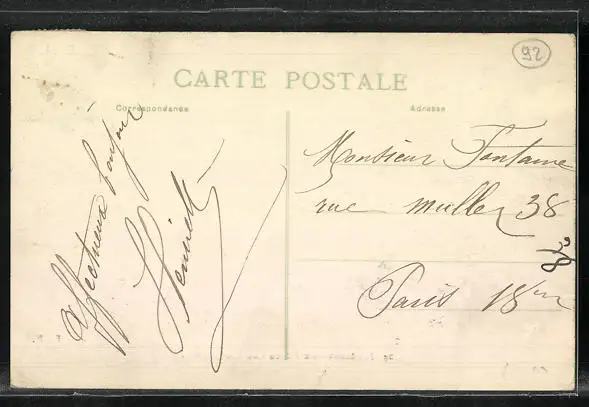 92
CARTE POSTALE
Correspondance
Adresse
Affectueux bonjour
Henriette
Monsieur Fontaine
rue Muller 38
Paris 18em